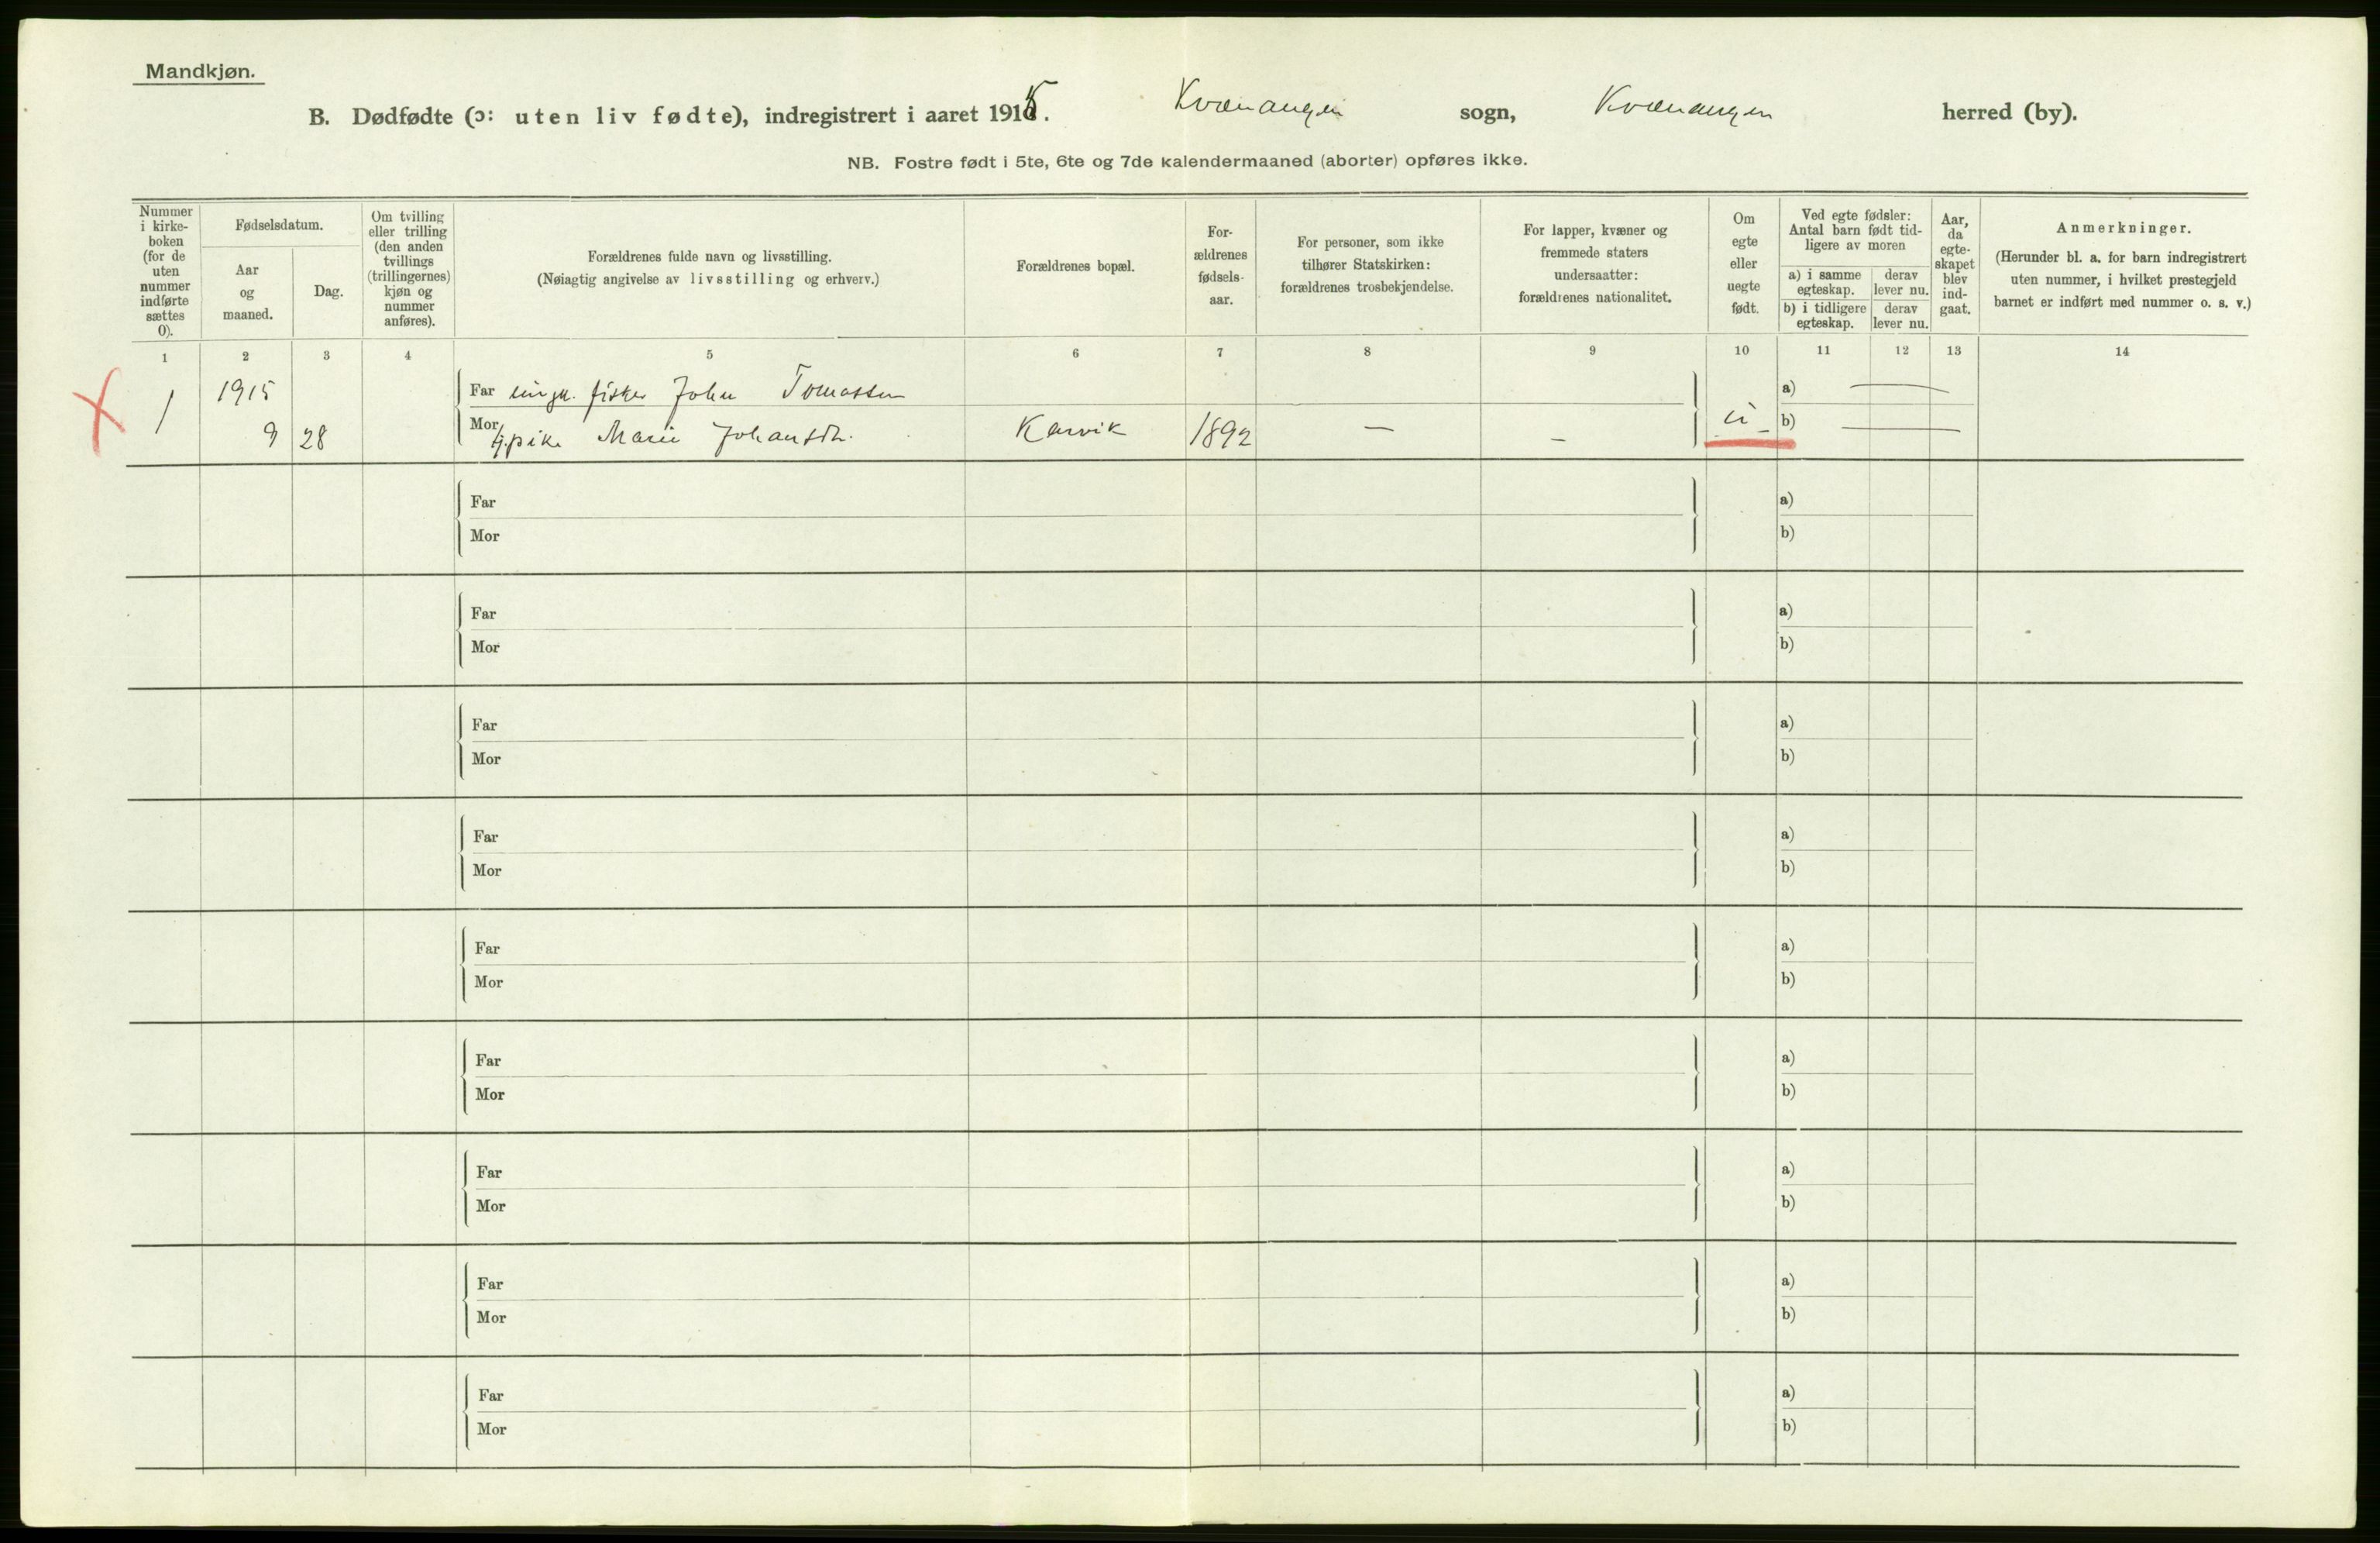 Mandkjøn.
B. Dødfødte (ɔ: uten liv fødte), indregistrert i aaret 1915. Kvænangen sogn, Kvænangen herred (by).
NB. Fostre født i 5te, 6te og 7de kalendermaaned (aborter) opføres ikke.
Nummer i kirke-boken (for de uten nummer indførte sættes 0).
Fødselsdatum.
Aar og maaned.
Dag.
Om tvilling eller trilling (den anden tvillings (trillingernes) kjøn og nummer anføres).
Forældrenes fulde navn og livsstilling.
(Nøiagtig angivelse av livsstilling og erhverv.)
Forældrenes bopæl.
For-ældrenes fødsels-aar.
For personer, som ikke tilhører Statskirken: forældrenes trosbekjendelse.
For lapper, kvæner og fremmede staters undersaatter: forældrenes nationalitet.
Om egte eller uegte født.
Ved egte fødsler: Antal barn født tid-ligere av moren
a) i samme egteskap.
derav lever nu.
b) i tidligere egteskap.
derav lever nu.
Aar, da egte-skapet blev ind-gaat.
Anmerkninger.
(Herunder bl. a. for barn indregistrert uten nummer, i hvilket prestegjeld barnet er indført med nummer o. s. v.)
1 2 3 4 5 6 7 8 9 10 11 12 13 14
1915 Far ungk. fisker John Tomassen a) —
1 9 28 Mor pike Marie Johansdtr. Karvik 1892 — – u b) —
Far a)
Mor b)
Far a)
Mor b)
Far a)
Mor b)
Far a)
Mor b)
Far a)
Mor b)
Far a)
Mor b)
Far a)
Mor b)
Far a)
Mor b)
Far a)
Mor b)